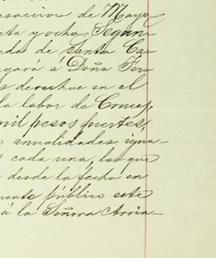 asocion de Mayo
enta y ocho, Segun
nda de Santa Ca-
gará á Doña Fer-
s derechos en el
la labor de Concep
mil pesos fuertes,
s anualidades igua-
s cada una, las que
desde la fecha en
mento público este
á la Señora Arria-